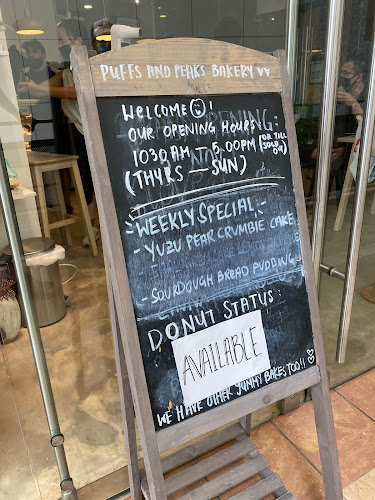 PUFFS AND PEAKS BAKERY
WELCOME !
OUR OPENING HOURS:
1030AM — 5.00PM (OR TILL SOLD OUT)
(THURS — SUN)
WEEKLY SPECIAL:
- YUZU PEAR CRUMBLE CAKE
- SOURDOUGH BREAD PUDDING
DONUT STATUS:
AVAILABLE
WE HAVE OTHER YUMMY BAKES TOO!!